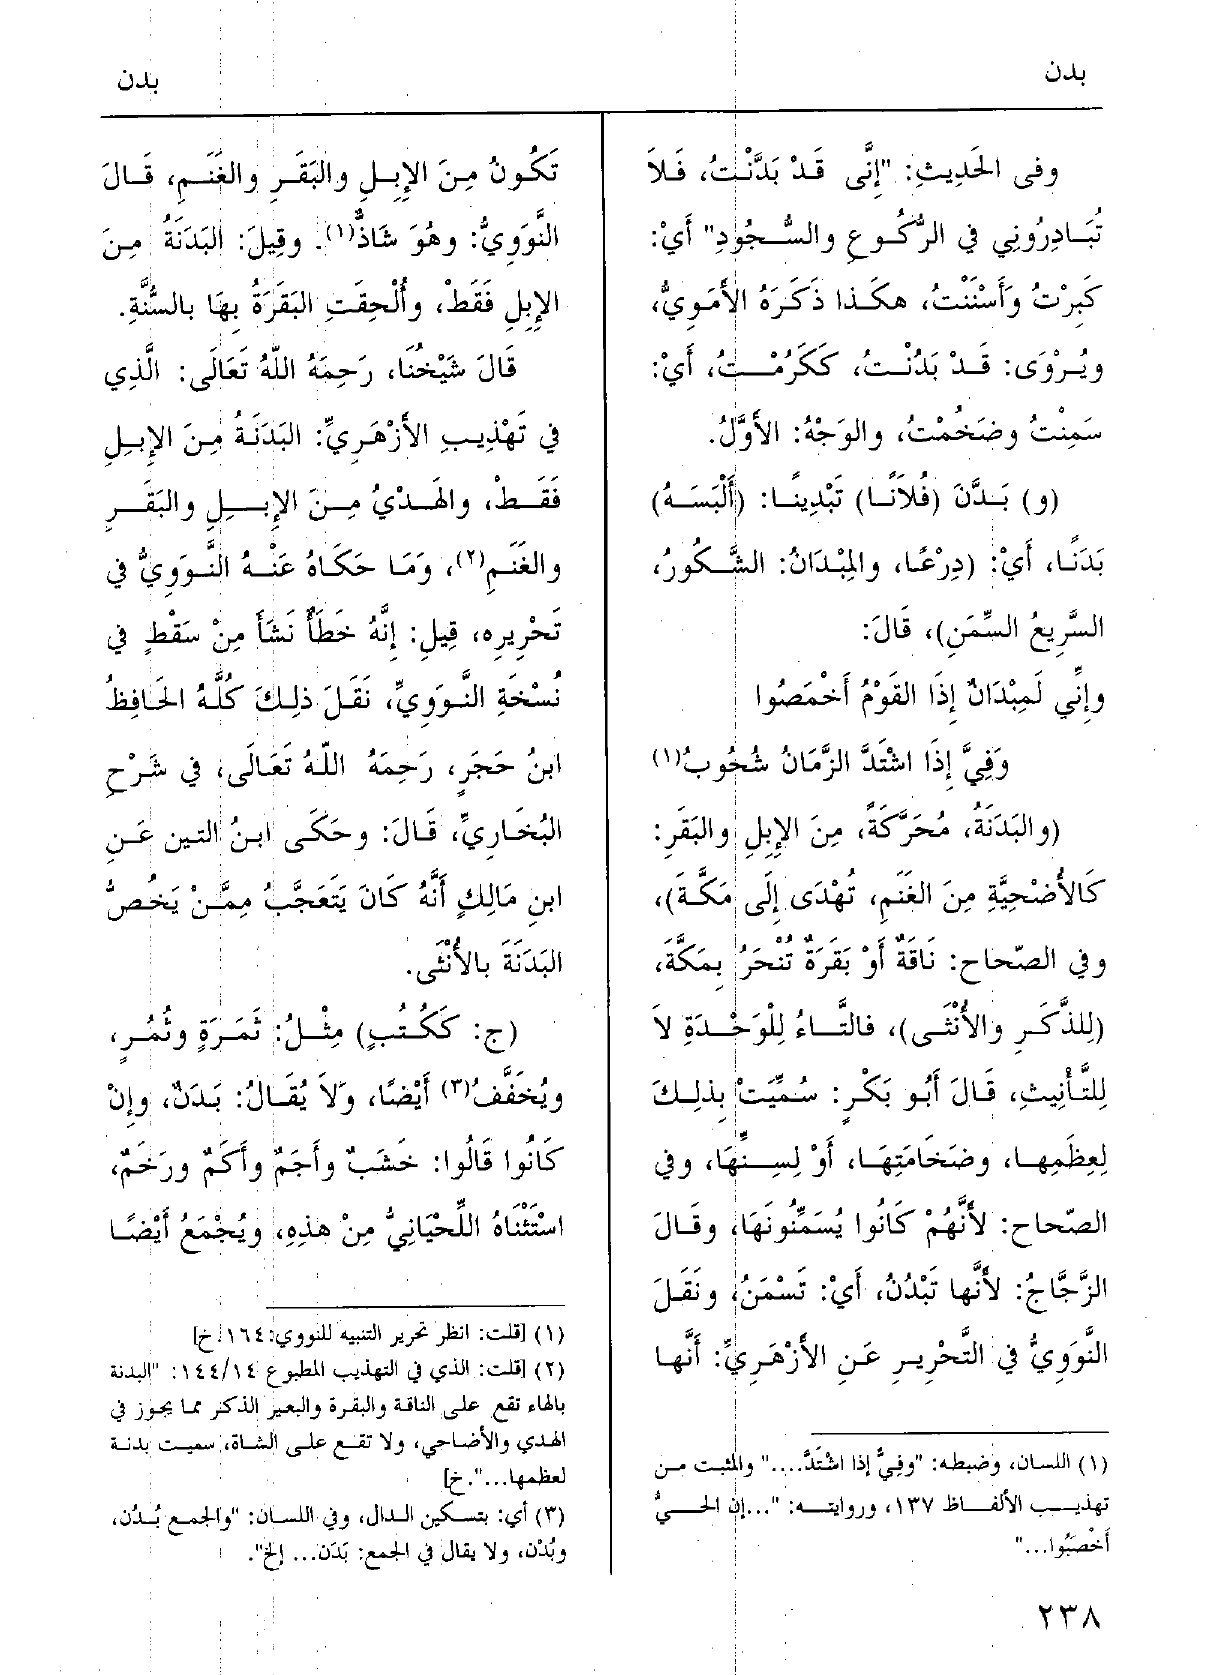 بدن
بدن
وفى الحَدِيثِ: "إنَّى قَدْ بَدَّنْتُ، فَلاَ
تُبَادِرُونِي في الرُّكُوعِ والسُّجُودِ" أَيْ:
كَبِرْتُ وَأَسْنَنْتُ، هكَذا ذَكَرَهُ الأُمَوِيُّ،
ويُرْوَى: قَدْ بَدُنْتُ، كَكَرُمْتُ، أَيْ:
سَمِنْتُ وضَخُمْتُ، والوَجْهُ: الأَوَّلُ.
(و) بَدَّنَ (فُلاَنًا) تَبْدِينًا: (أَلْبَسَهُ)
بَدَنًا، أَيْ: (دِرْعًا، والمِبْدَانُ: الشَّكُورُ،
السَّرِيعُ السِّمَنِ)، قَالَ:
وإنِّي لَمِبْدَانٌ إذَا القَوْمُ أَخْمَصُوا
وَفِيَّ إذَا اشْتَدَّ الزَّمَانُ شُحُوبُ(١)
(والبَدَنَةُ، مُحَرَّكَةً، مِنَ الإِبِلِ والبَقَرِ:
كَالأُضْحِيَّةِ مِنَ الغَنَمِ، تُهْدَى إلَى مَكَّةَ)،
وفي الصّحاح: نَاقَةٌ أَوْ بَقَرَةٌ تُنْحَرُ بِمَكَّةَ،
(لِلذَّكَرِ والأُنْثَى)، فالتَّاءُ لِلْوَحْدَةِ لاَ
لِلتَّأْنِيثِ، قَالَ أَبُو بَكْرٍ: سُمِّيَتْ بِذلِكَ
لِعِظَمِها، وضَخَامَتِهَا، أَوْ لِسِنِّهَا، وفي
الصّحاح: لأَنَّهُمْ كَانُوا يُسَمِّنُونَهَا، وقَالَ
الزَّجَّاجُ: لأَنَّها تَبْدُنُ، أَيْ: تَسْمَنُ، ونَقَلَ
النَّوَوِيُّ في التَّحْرِيرِ عَنِ الأَزْهَرِيِّ: أَنَّها
(١) اللسان، وضبطه: "وفِيَّ إذا اشْتَدَّ...." والمثبت من
تهذيب الألفاظ ١٣٧، وروايته: "...إن الحَيُّ
أَخْصَبُوا..."
تَكُونُ مِنَ الإِبِلِ والبَقَرِ والغَنَمِ، قَالَ
النَّوَوِيُّ: وهُوَ شَاذٌّ(١). وقِيلَ: البَدَنَةُ مِنَ
الإِبِلِ فَقَطْ، وأُلْحِقَتِ البَقَرَةُ بِهَا بالسُّنَّةِ.
قَالَ شَيْخُنَا، رَحِمَهُ اللهُ تَعَالَى: الَّذِي
في تَهْذِيبِ الأَزْهَرِيِّ: البَدَنَةُ مِنَ الإِبِلِ
فَقَطْ، والهَدْيُ مِنَ الإِبِلِ والبَقَرِ
والغَنَمِ(٢)، وَمَا حَكَاهُ عَنْهُ النَّوَوِيُّ في
تَحْرِيرِه، قِيلَ: إنَّهُ خَطَأٌ نَشَأَ مِنْ سَقْطٍ في
نُسْخَةِ النَّوَوِيِّ، نَقَلَ ذلِكَ كُلَّهُ الحَافِظُ
ابنُ حَجَرٍ، رَحِمَهُ اللهُ تَعَالَى، في شَرْحِ
البُخَارِيِّ، قَالَ: وحَكَى ابنُ التين عَن
ابنِ مَالِكٍ أَنَّهُ كَانَ يَتَعَجَّبُ مِمَّنْ يَخُصُّ
البَدَنَةَ بالأُنْثَى.
(ج: كَكُتُبٍ) مِثْلُ: ثَمَرَةٍ وثُمُرٍ،
ويُخَفَّفُ(٣) أَيْضًا، وَلاَ يُقَالُ: بَدَنٌ، وإنْ
كَانُوا قَالُوا: خَشَبٌ وأَجَمٌ وأَكَمٌ ورَخَمٌ،
اسْتَثْنَاهُ اللِّحْيَانِيُّ مِنْ هذِهِ، ويُجْمَعُ أَيْضًا
(١) [قلت: انظر تحرير التنبيه للنووي: ١٦٤. خ]
(٢) [قلت: الذي في التهذيب المطبوع ١٤٤/١٤: "البدنة
بالهاء تقع على الناقة والبقرة والبعير الذكر مما يجوز في
الهدي والأضاحي، ولا تقع على الشاة، سميت بدنة
لعظمها...". خ]
(٣) أي: بتسكين الدال، وفي اللسان: "والجمع بُدُن،
وبُدْن، ولا يقال في الجمع: بَدَن... إلخ".
٢٣٨